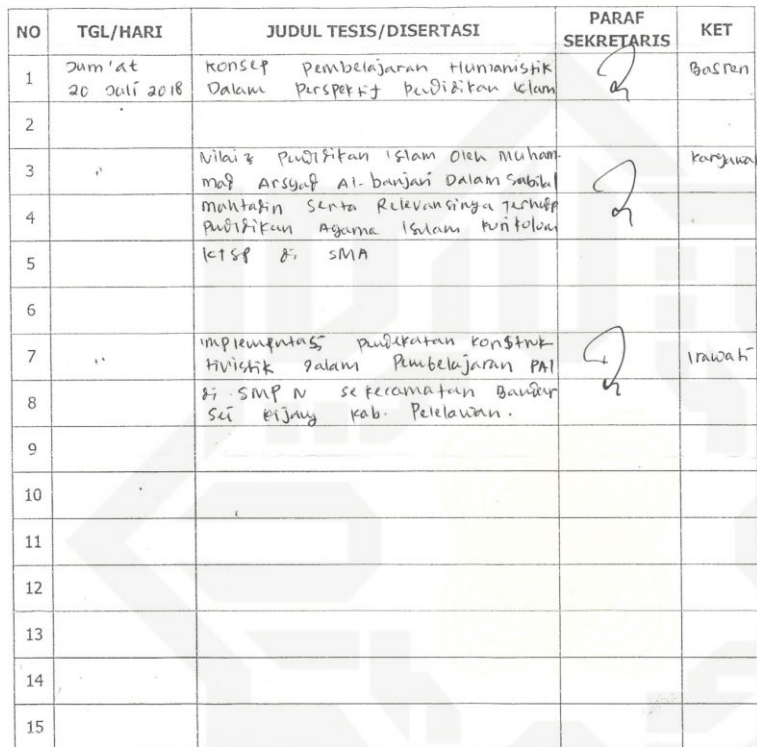 NO TGL/HARI JUDUL TESIS/DISERTASI PARAF SEKRETARIS KET
1 Jum'at Konsep Pembelajaran Humanistik Basren
20 Juli 2018 Dalam Perspektif Pendidikan Islam
2
3 " Nilai2 Pendidikan Islam Oleh Muham- Karyawa
mad Arsyad Al-banjari Dalam Sabilal
4 muhtadin Serta Relevansinya Terhadap
Pendidikan Agama Islam Kurikulum
5 KTSP di SMA
6
7 " Implementasi pendekatan Konstruk Irawati
tivistik dalam Pembelajaran PAI
8 di SMP N se kecamatan Bandar
Sei Kijang Kab. Pelelawan.
9
10
11
12
13
14
15